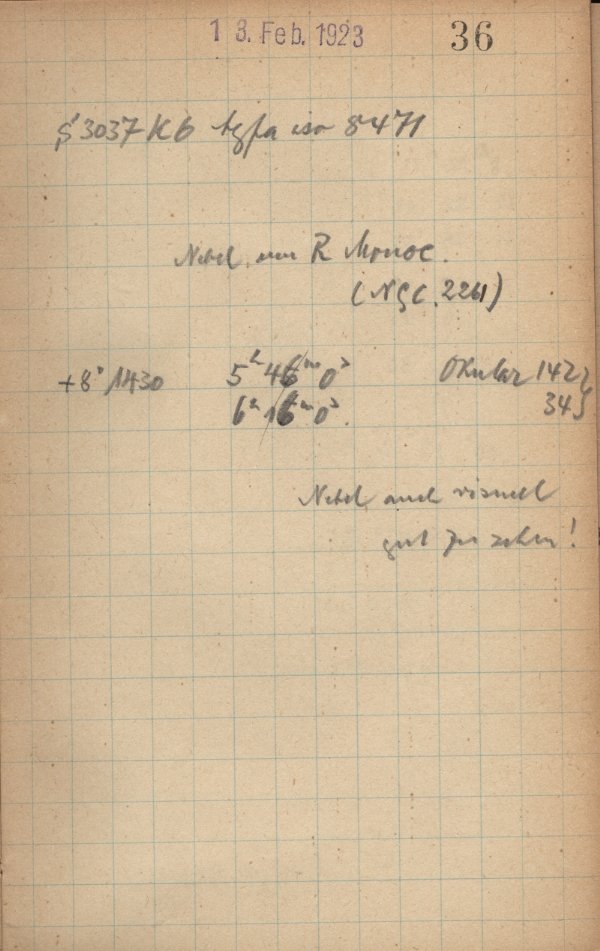 13. Feb. 1923 36
S 3037 Kb Agfa iso 8471
Nebel um R Monoc.
(NGC. 2261)
+8° 1430 5h 46m 0s Okular 142
6h 16m 0s 34
Nebel auch visuell
gut zu sehen!